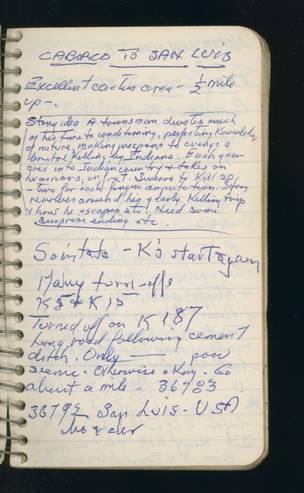 CABORCO TO SAN LUIS
Excellent cactus area - ½ mile
up -.
Story idea A townsman devotes much
of his time to conditioning, perfecting knowledge
of nature, making weapons to avenge a
brutal killing by Indians. Each year
goes into Indian country & takes on
warriors, on foot. Swears to kill 20
- two for each finger amputation. Story
revolves around his yearly killing trip
& how he escapes etc. Need some
surprise ending etc.
Sointate - K's start again
Many turn-offs
K 5 & K 15
Turned off on K 187
Long road following cement
ditch. Only — poor
scenic. Otherwise okay. Go
about a mile - 36783
36792 San Luis - USA
border